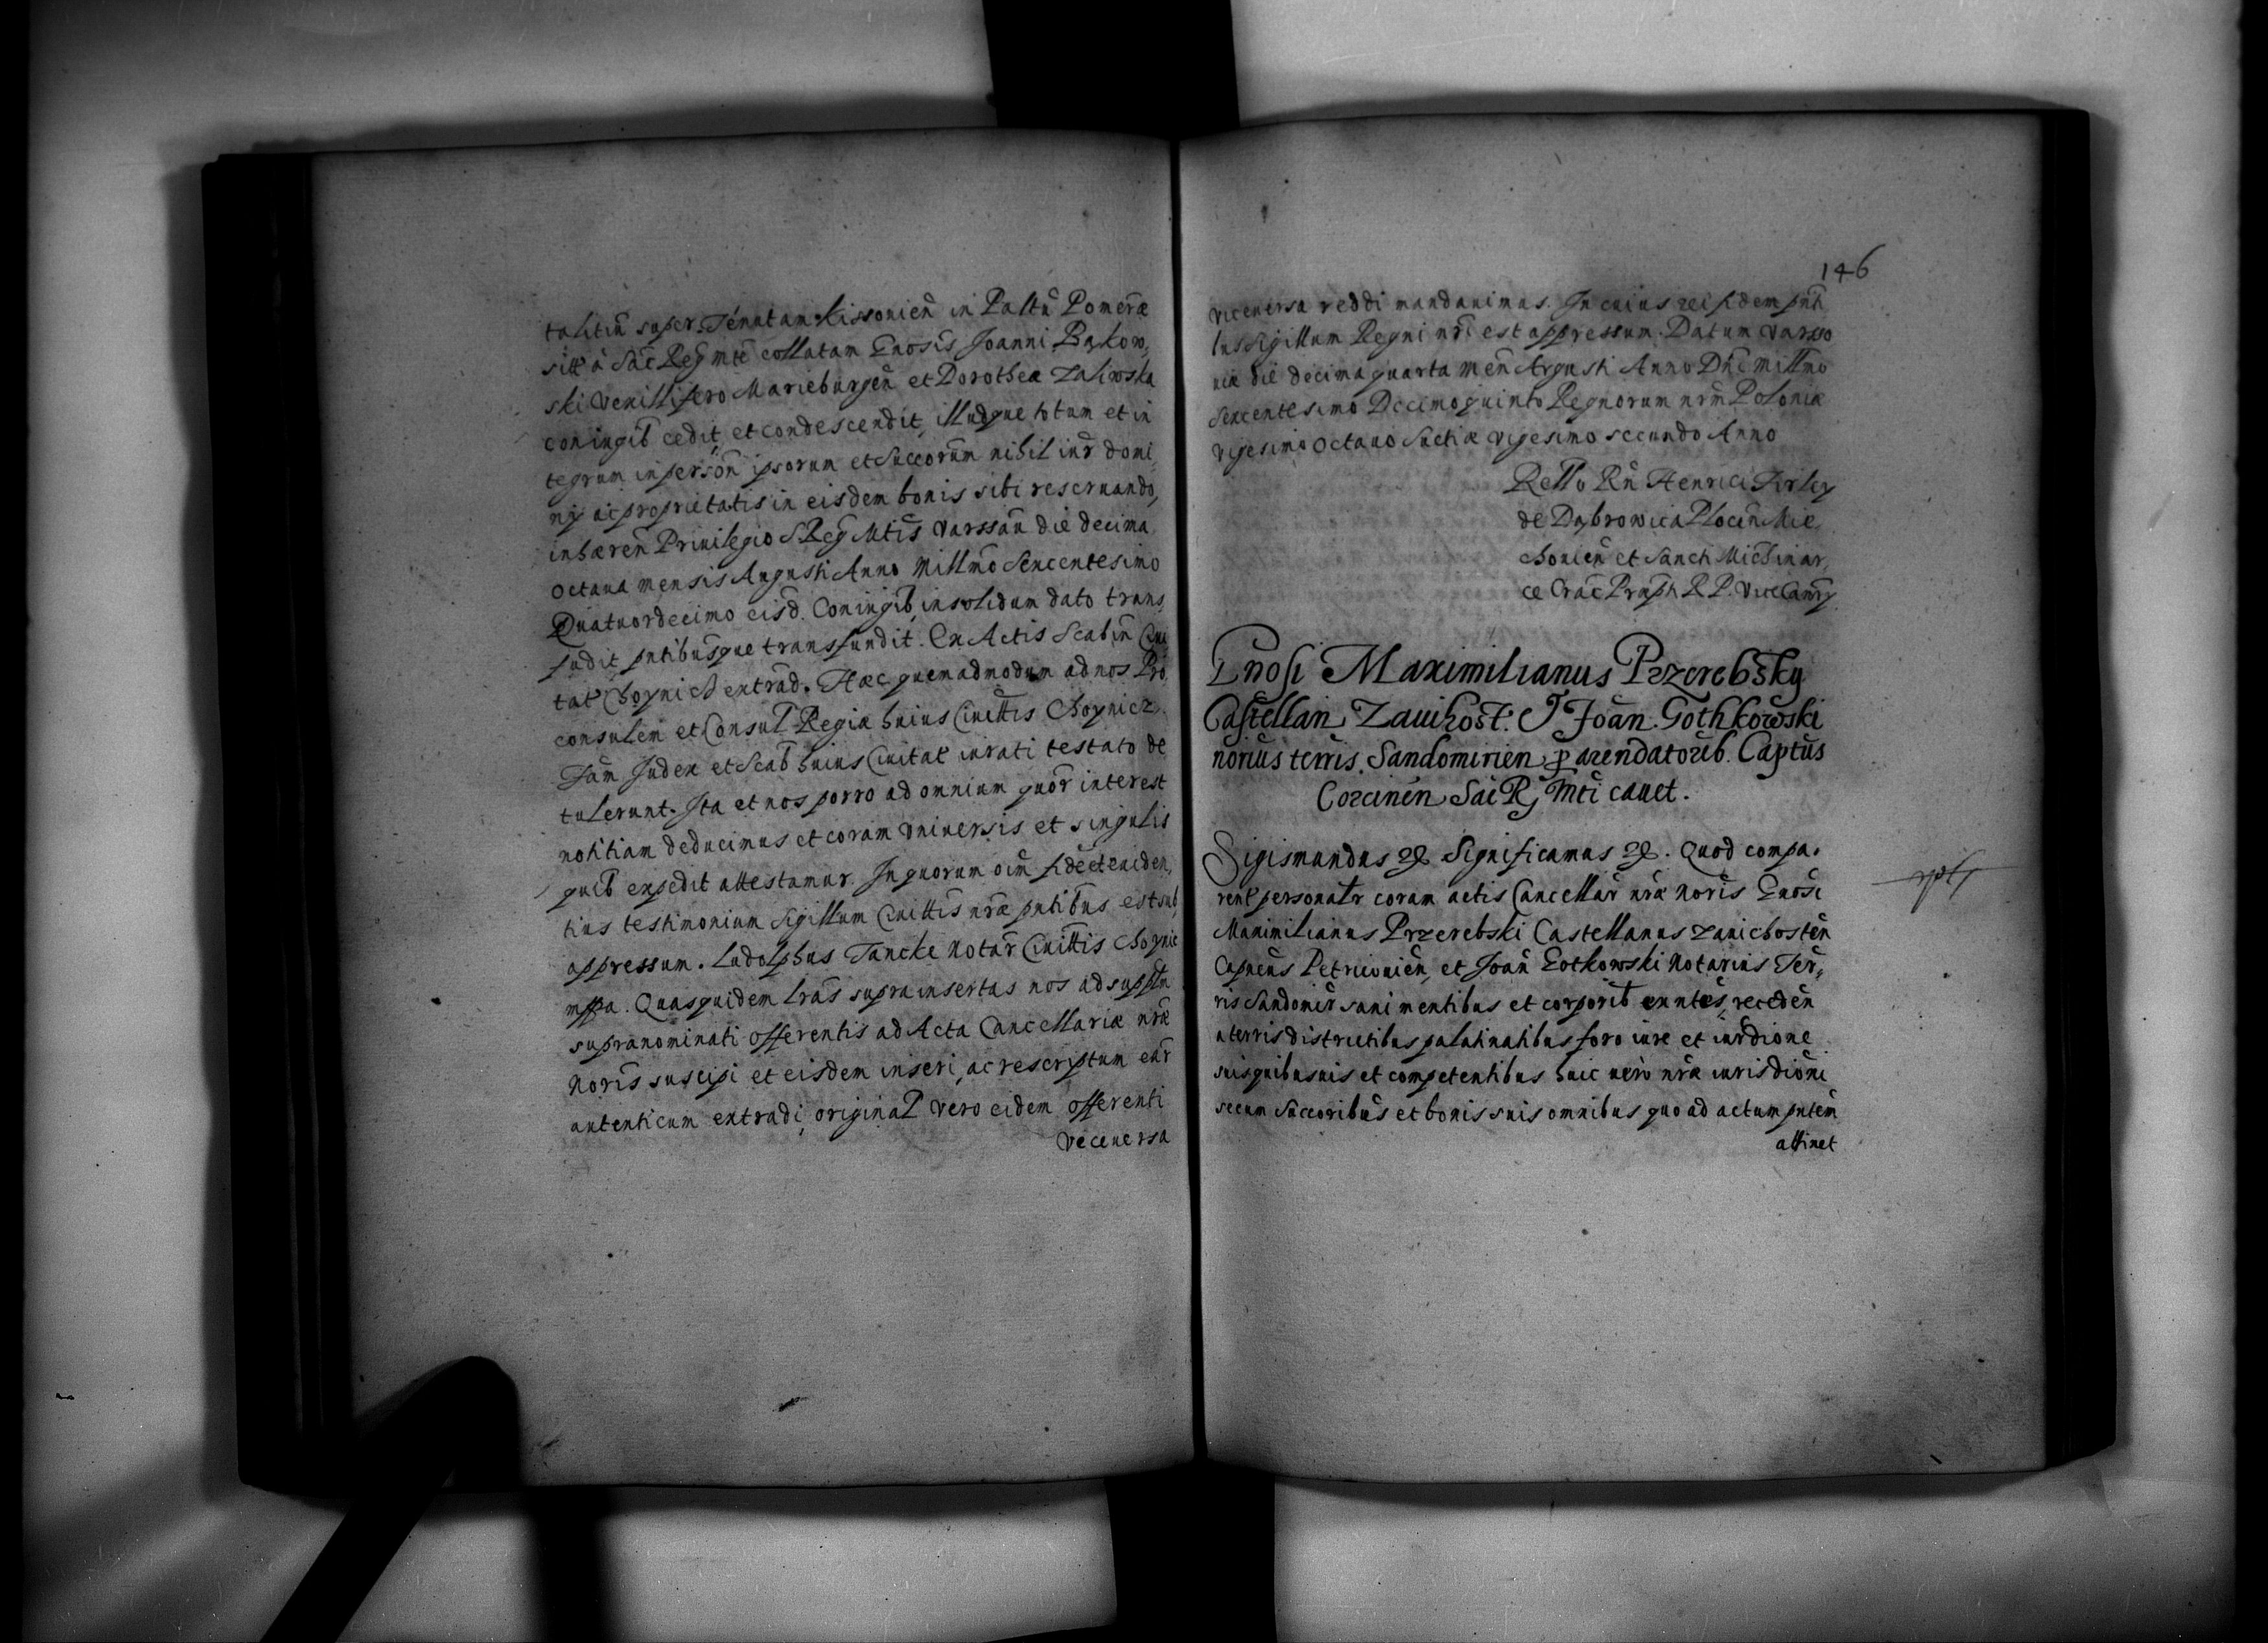 talitiū super Tenutam Kissonień in Pallñ Pomeræ
sitt à Sac Reg mte collatam Gnosis Joanni Bąkow,
ski Vexillifero Marieburgeñ et Dorotheæ Zaliwska
coniugib cedit, et condescendit, illudque totum et in
tegrum in person ipsorum et Succorum nihil iur domi,
nij ac proprietatis in eisdem bonis sibi reseruando,
inhæreñ Priuilegio S Reg Mtis Varssau die decima
octaua mensis Augusti Anno Millmo Sexcentesimo
Quatuordecimo eisd. Coniugib, in solidum dato trans,
fudit pntibusque transfundit. Ex Actis Scabin Ciui
tat Choynich extrad. Hæc quemadmodum ad nos Pro
consulem et Consul Regiæ huius Ciuittis Choynicz.
Fam Judex et Scab huius Ciuitat iurati testato de
tulerunt. Ita et nos porro ad omnium quor interest
notitiam deducimus et coram Vniuersis et singulis
quib expedit attestamur. In quorum oim fidē et euiden,
tius testimonium Sigillum Ciuittis nræ pntibus est sub,
appressum. Ludolphus Tancke Notar Ciuittis Choynic
mppa. Quasquidem lras suprainsertas nos ad supplm
supranominati offerentis ad Acta Cancellariæ nræ
Noris suscipi et eisdem inseri, ac rescriptum ear
autenticum extradi, original vero eidem offerenti
Veceuersa
146
viceuersa reddi mandauimus. In cuius rei fidem pnti
bus Sigillum Regni nri est appressum. Datum Varsso
uiæ die decima quarta Men Augusti Anno Dni Millmo
Sexcentesimo Decimoquinto Regnorum nrm Poloniæ
vigesimo octauo Suetiæ vigesimo secundo Anno
Rello Rn Henrici Firley
de Dąbrowica Plocen Mie
chouień et Sancti Mich in ar,
ce Crac Prapti R P. ViceCanrij
Gnosi Maximilianus Przerebsky
Castellan Zauihost. J Joan. Gothkowski
norius terris Sandomirień ꝓ arendatorib. Captus
Corcinēn Sac Rj Mti cauet.
Sigismundus ꝛc Significamus ꝛc. Quod compa.
rent personalr coram actis Cancellar nræ Noris Gnosi
Maximilianus Przerebski Castellanus Zauichosteñ
Capneus Petricouień, et Joañ Gotkowski Notarius Ter,
ris Sandomir sani mentibus et corporib enntes, recedeñ
a terris districtibus palatinatibus foro iure et iurdione
suis quibusuis et competentibus huic vero nræ iurisdioni
secum Succoribus et bonis suis omnibus quo ad actum pntem
attinet